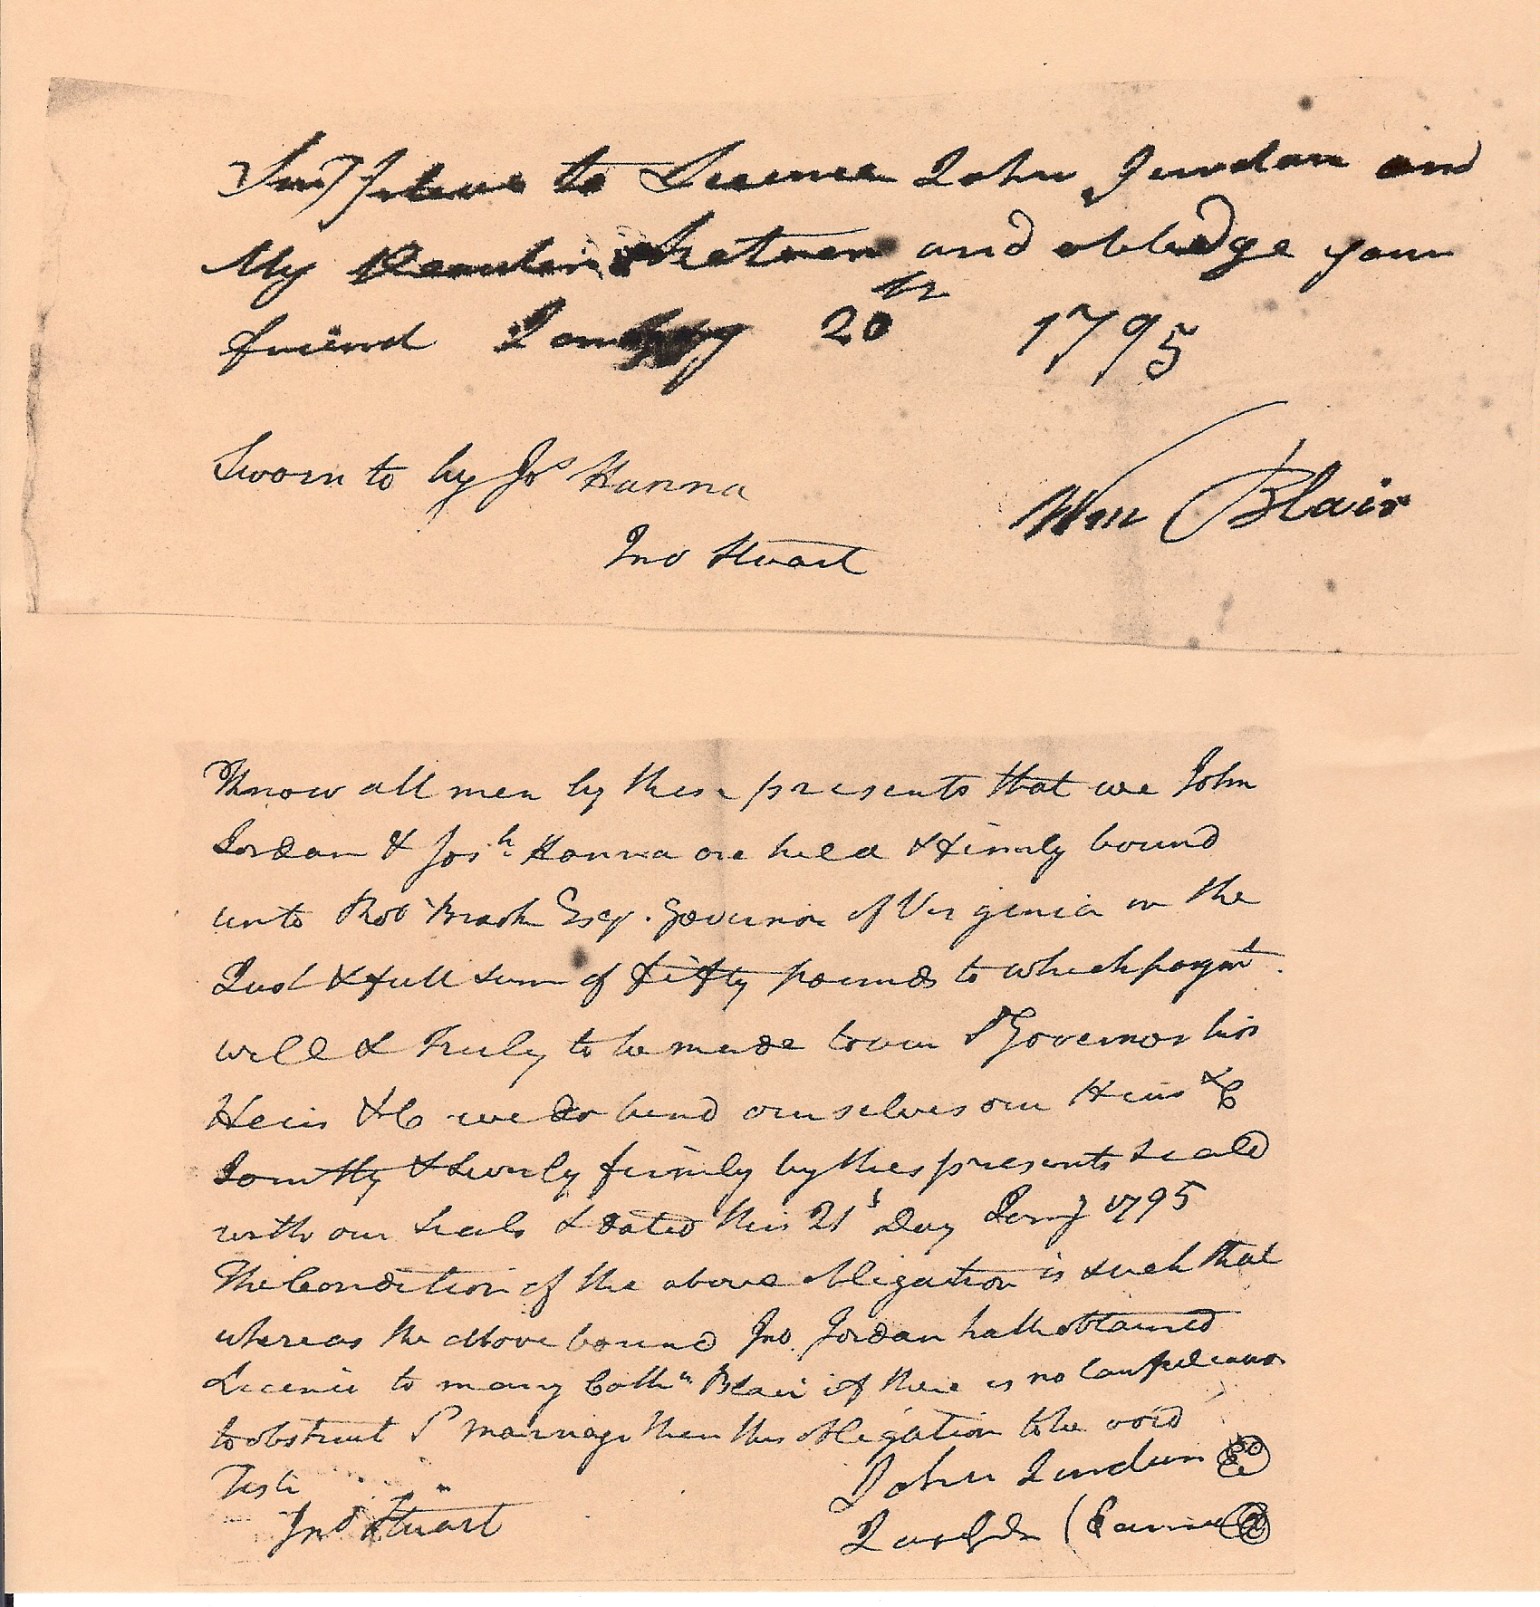 Sir Please to Licence John Jurdan and
My Daughter Ketren and obledge your
friend Janury 20th 1795
Sworn to by Jos Hanna
Wm Blair
Jno Stuart
Know all men by these presents that we John
Jordan & Josh Hanna are held & firmly bound
unto Robt Brook Esqr. Governor of Virginia in the
Just & full sum of fifty pounds to which paymt.
will & truly to be made to our Sd Governor his
Heirs &C we do bind ourselves our Heirs &C
Jointly & Sevrly firmly by thes presents Seald
with our Seals & dated this 21st Day Jany 1795
The Condition of the above obligation is such that
whereas the above bound Jno. Jordan hath obtained
Licence to marry Cathn Blair if there is no Lawful cause
to obstruct Sd marriage then this obligation to be void
Test
John Jurdan
Jno Stuart
Hanna